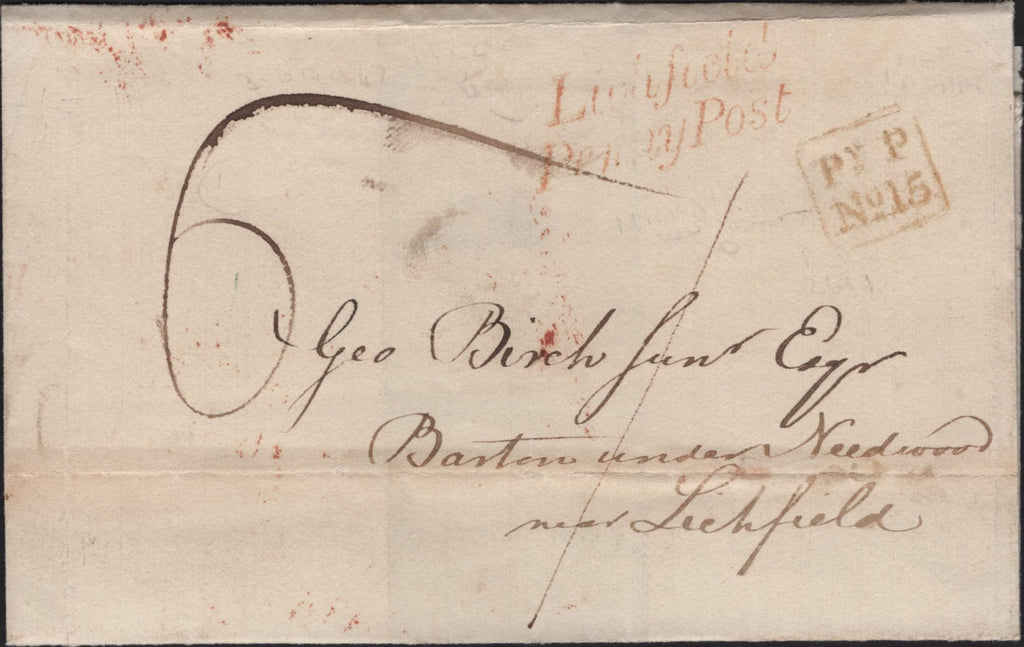 Lichfield
Penny Post
Py P
No 15
6
Geo Birch Junr Esqr
Barton under Needwood
near Lichfield